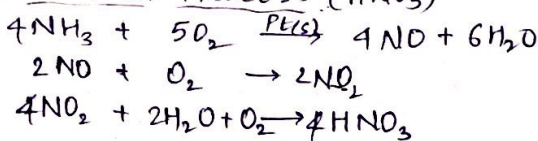 (HNO₃)
4NH₃ + 5O₂ Pt(s)→ 4NO + 6H₂O
2NO + O₂ → 2NO₂
4NO₂ + 2H₂O + O₂ → 4HNO₃